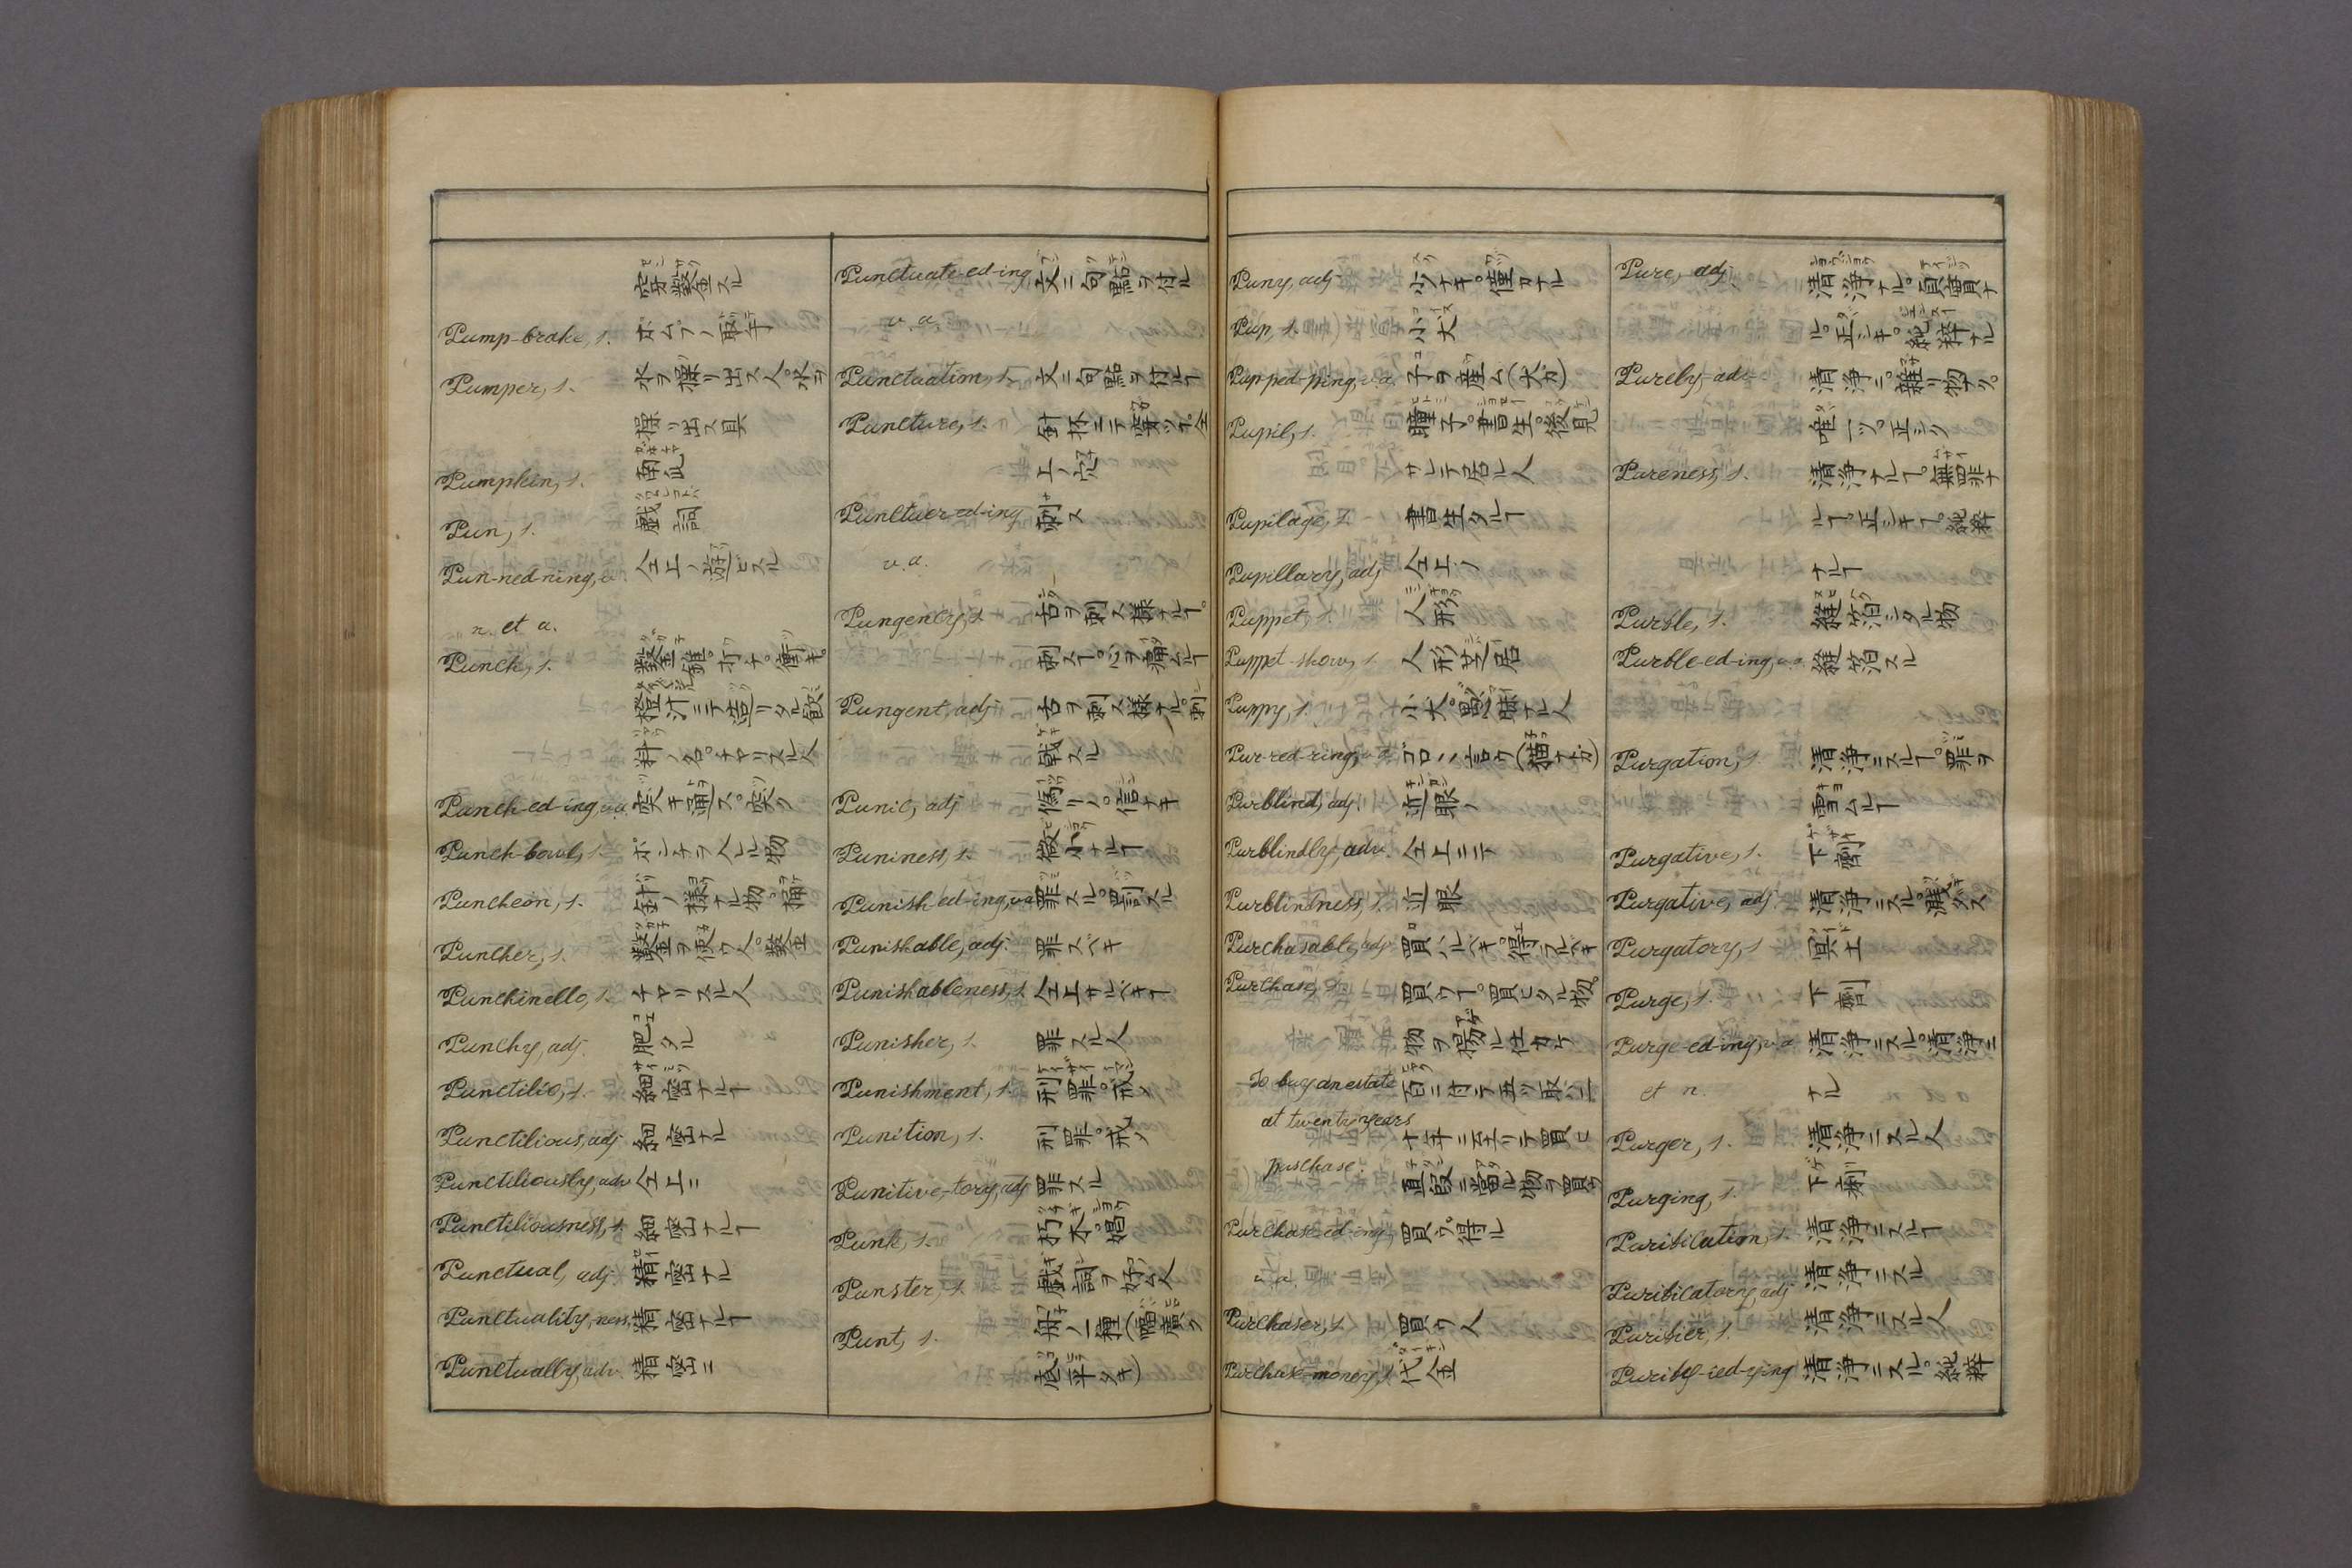 穿鑿スル
Pump-brake, s. ポムプノ取手
Pumper, s. 水ヲ操リ出ス人。水ヲ
操リ出ス具
Pumpkin, s. 南瓜
Pun, s. 戯詞
Pun-ned-ning, v. 仝上ノ遊ビスル
n. et a.
Punch, s. 鑿錐。打ツ。衝キ。
橙汁ニテ造リタル飲
料ノ名。チヤリスル人
Punch-ed-ing, v.a. 突キ通ス。突ク
Punch-bowl, s. ポンチヲ入ル物
Puncheon, s. 針ノ様ナル物。桶
Puncher, s. 鑿ヲ使ウ人。鑿
Punchinello, s. チヤリスル人
Punchy, adj. 肥タル
Punctilio, s. 細密ナルヿ
Punctilious, adj. 細密ナル
Punctiliously, adv. 仝上ニ
Punctiliousness, s. 細密ナルヿ
Punctual, adj. 精密ナル
Punctuality, ness. 精密ナルヿ
Punctually, adv. 精密ニ
Punctuate-ed-ing, 文ニ句點ヲ付ル
v. a.
Punctuation, s. 文ニ句點ヲ付ルヿ
Puncture, s. 針抔ニテ突ツキ。仝
上ノ穴
Punctuer-ed-ing 刺ス
v. a.
Pungency, s. 舌ヲ刺ス様ナルヿ。
刺スヿ。心ヲ痛ムルヿ
Pungent, adj. 舌ヲ刺ス様ナル。刺
戟スル
Punic, adj. 偽リノ。信ナキ
Puniness, s. 微小ナルヿ
Punish-ed-ing, v.a. 罪スル。罰スル
Punishable, adj. 罪スベキ
Punishableness, s. 仝上サルベキヿ
Punisher, s. 罪スル人
Punishment, s. 刑罪。戒メ
Punition, s. 刑罪。戒メ
Punitive-tory, adj. 罪スル
Punk, s. 朽木。娼
Punster, s. 戯詞ヲ好ム人
Punt, s. 舟ノ一種(幅廣ク
底平タキ)
Puny, adj. 少ナキ。僅カナル
Pup, s. 小犬
Pup-ped-ping, v.a. 子ヲ産ム(犬ガ)
Pupil, s. 瞳子。書生。後見
サレテ居ル人
Pupilage, s. 書生タルヿ
Pupillary, adj. 仝上ノ
Puppet, s. 人形
Puppet-show, s. 人形芝居
Puppy, s. 小犬。愚昧ナル人
Pur-red-ring, v.n. ゴロゝゝ言ウ(猫ナドガ)
Purblind, adj. 近眼ノ
Purblindly, adv. 仝上ニテ
Purblindness, s. 近眼
Purchasable, adj. 買ハルベキ。得ラルベキ
Purchase, s. 買ウヿ。買ヒタル物。
物ヲ揚ル仕カケ
To buy an estate 百ニ付テ五ツ取ニ
at twenty years 十年ニ至リテ買ヒ
purchase. 直段ニ當ル物ヲ買ウ
Purchase-ed-ing, 買ウ。得ル
v. a.
Purchaser, s. 買ウ人
Purchase-money, s. 代金
Pure, adj. 清浄ナル。真實ナ
ル。正シキ。純粋ナル
Purely, adv. 清浄ニ。雜リ物ナク。
唯一ツ。正シク
Pureness, s. 清浄ナルヿ。無罪ナ
ルヿ。正シキヿ。純粋
ナルヿ
Purfle, s. 縫箔シタル物
Purfle-ed-ing, v.a. 縫箔スル
Purgation, s. 清浄ニスルヿ。罪ヲ
雪ムルヿ
Purgative, s. 下劑
Purgative, adj. 清浄ニスル。瀉クダス
Purgatory, s. 冥土
Purge, s. 下劑
Purge-ed-ing, v.a. 清浄ニスル。清浄ニ
et n. ナル
Purger, s. 清浄ニスル人
Purging, s. 下痢
Purification, s. 清浄ニスルヿ
Purificatory, adj. 清浄ニスル
Purifier, s. 清浄ニスル人
Purify-ied-ying 清浄ニスル。純粋